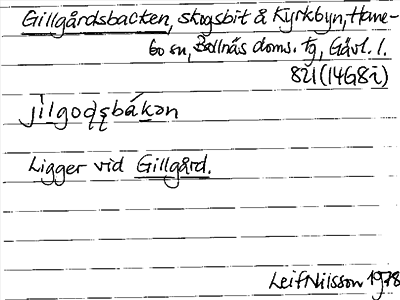 Gillgårdsbacken, skogsbit å Kyrkbyn, Hane-
bo sn, Bollnäs doms. tg, Gävl. l.
8U(14G8i)
jilgoḍṣbákən
Ligger vid Gillgård.
Leif Nilsson 1978